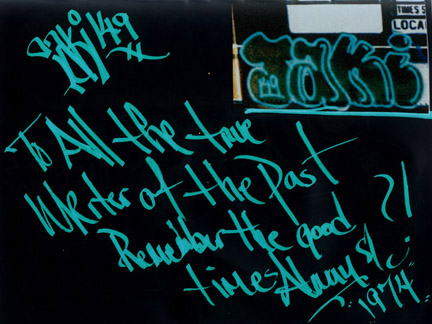 149
TIMES S
LOCA
To All the true
Writer of the Past
Remember the good
times
1974